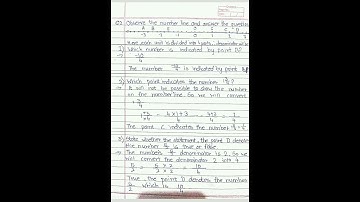 Q2 Observe the number line and answer the question
-3 -2 -1 0 1 2 3
Here each unit is divided into 4 parts, denominator will
1) Which number is indicated by point B?
→ -10/4
The number -10/4 is indicated by point B
2) Which point indicates the number 1 3/4?
→ It will not be possible to show the number
on the number line. So we will convert
1 3/4
= 4×1+3 = 4+3 = 7
The point C indicates the number
3) State whether the statement, the point D denotes
the number 5/2 is true or false
→ The number 5/2 denominator is 2. So we
will convert the denominator 2 into 4
5/2 = 5×2 = 10/4
True, the point D denotes the number
5/2 which is 10/4